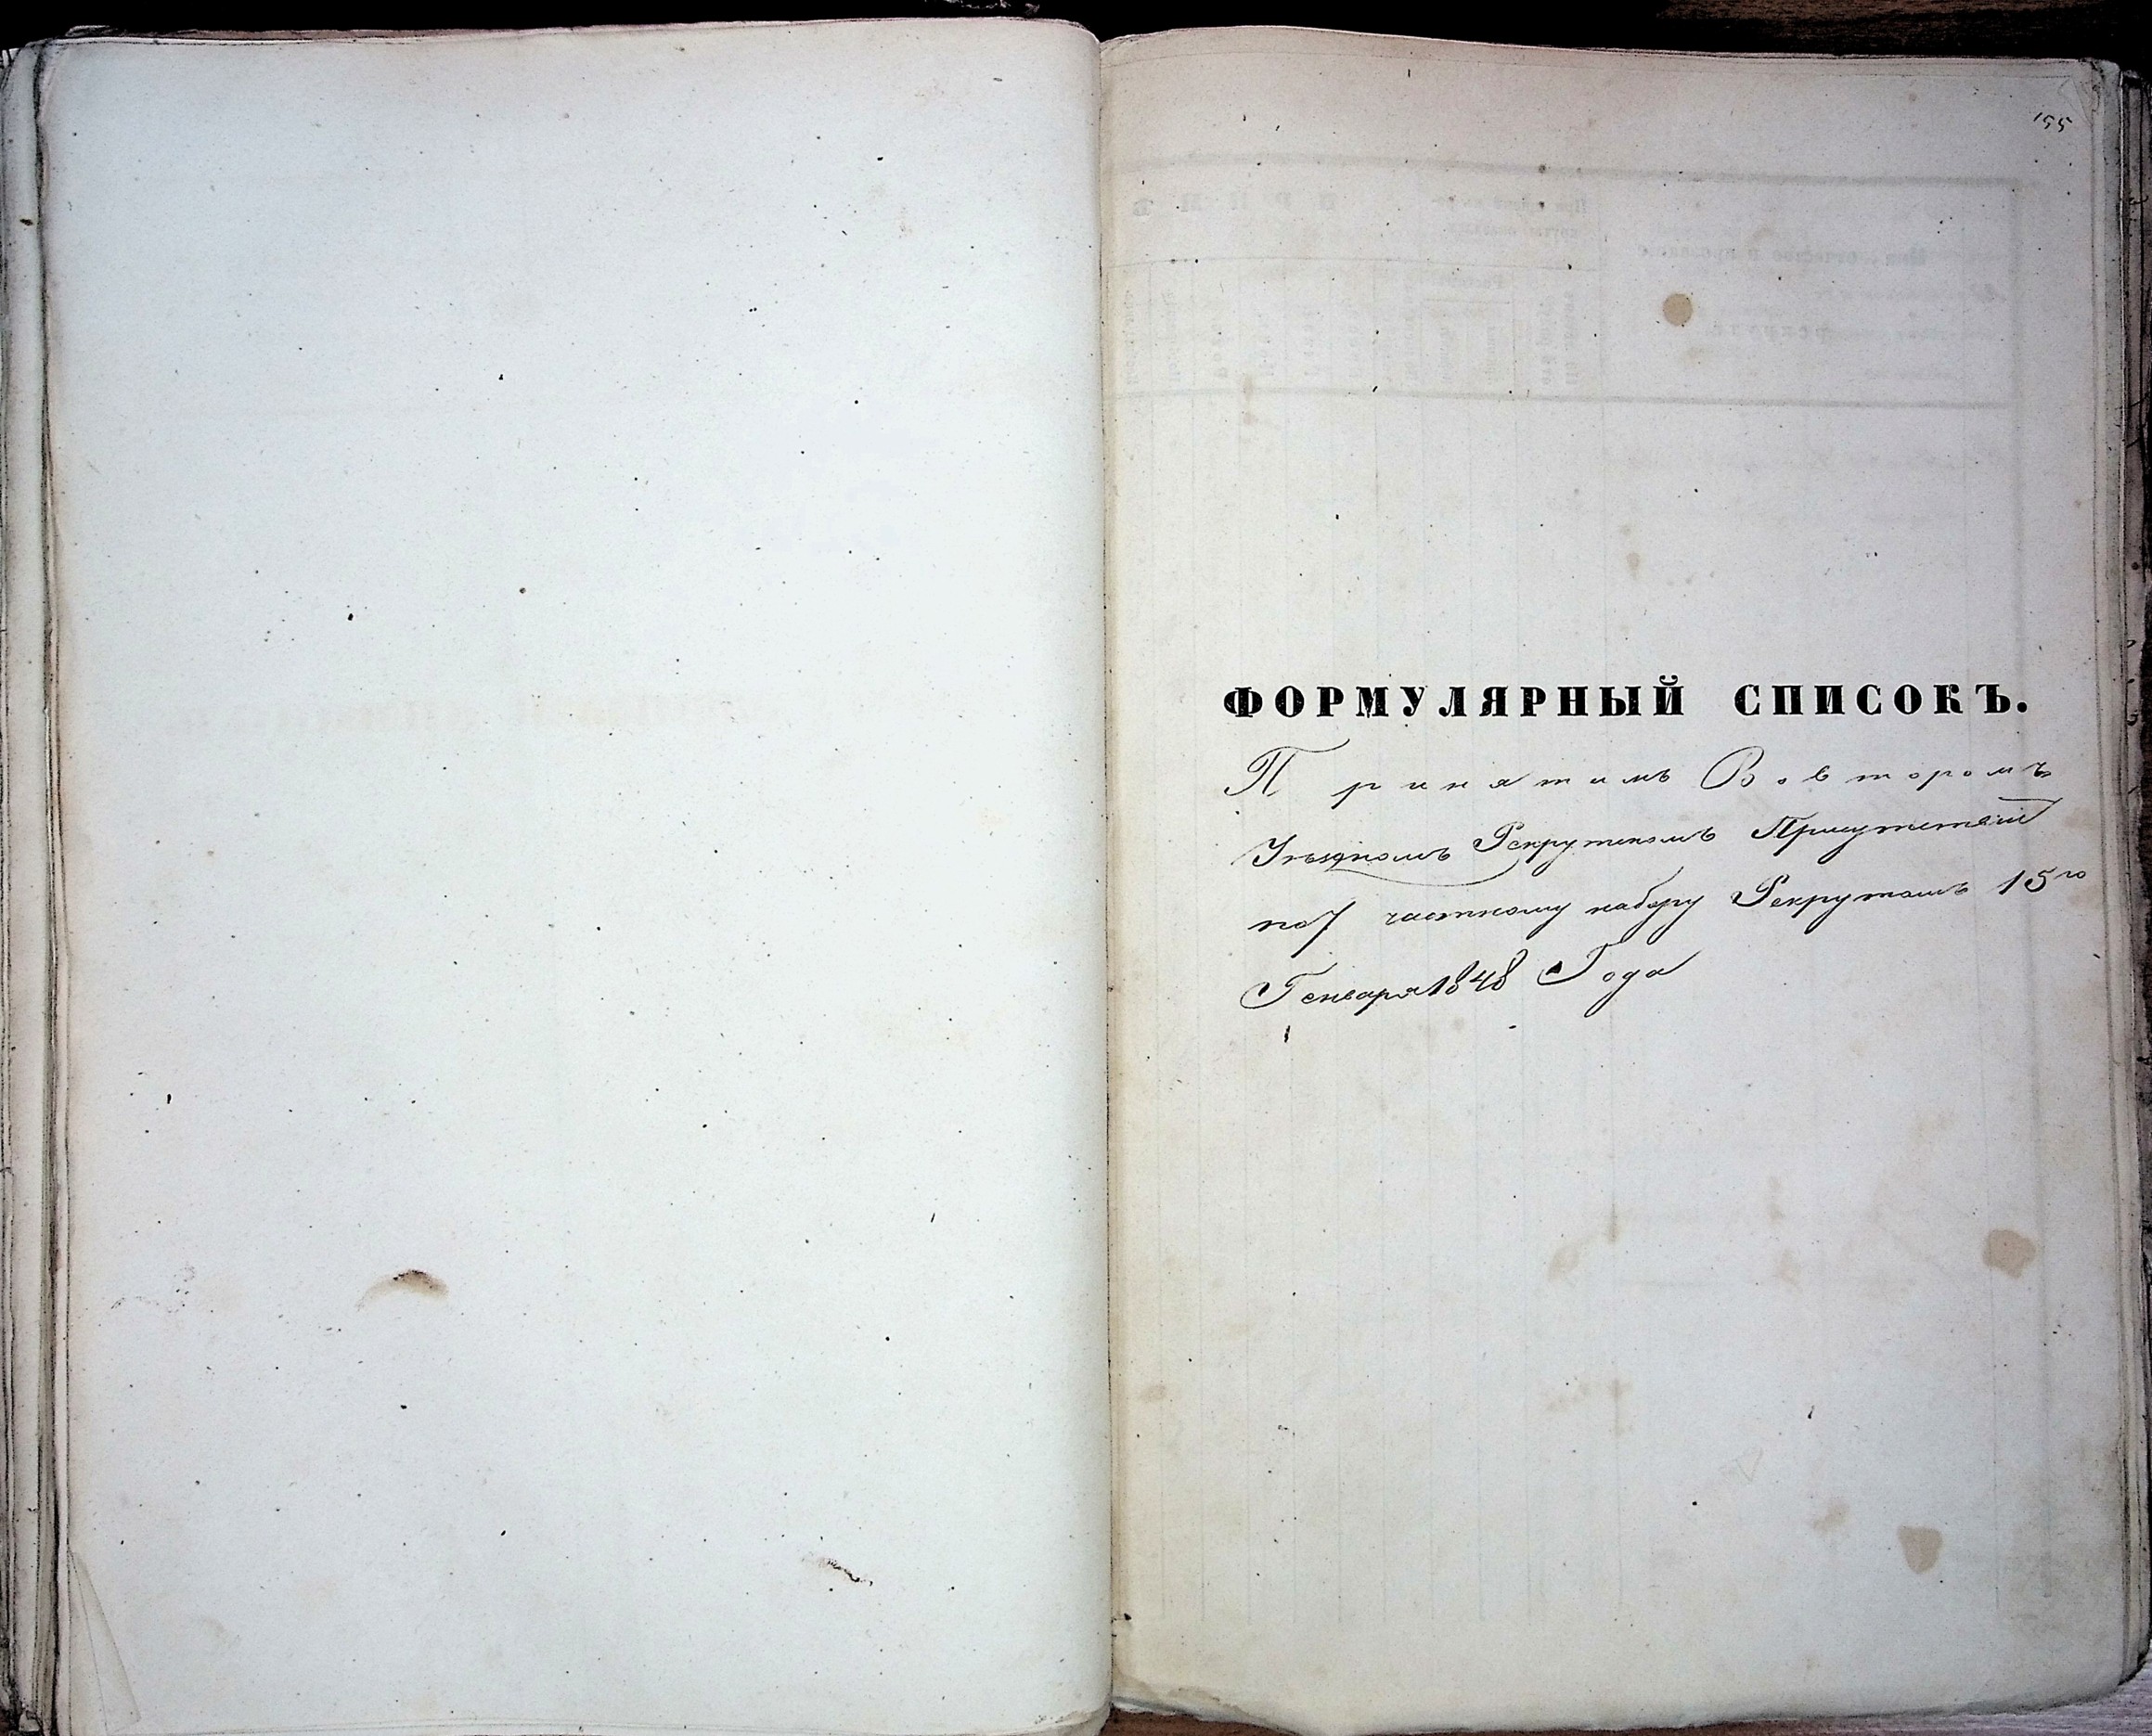 155
ФОРМУЛЯРНЫЙ СПИСОКЪ.
Принятымъ Во второмъ
Уѣздномъ Рекрутскомъ Присутствіи
по 7 частному набору Рекрутамъ 15го
Генваря 1848 Года